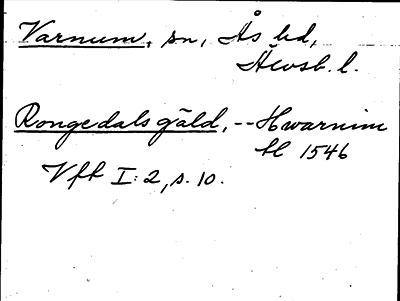 Varnum, sn, Ås hd,
Älvsb. l.
Rongedals gäld, -- Hwarnim
hl 1546
Vfh I: 2, s. 10.